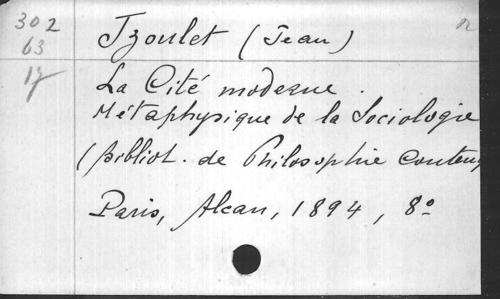 302 Izoulet (Jean) n
63
17 La Cité moderne.
Métaphysique de la Sociologie
(bibliot. de Philosophie contemp
Paris, Alcan, 1894, 8°